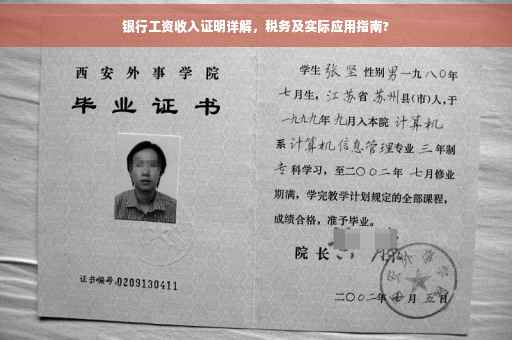 银行工资收入证明详解，税务及实际应用指南？
西安外事学院
毕业证书
证书编号：0209130411
学生 张坚 性别 男 一九八〇年
七月生，江苏省 苏州县(市)人，于
一九九九年 九月入本院 计算机
系 计算机信息管理专业 三 年制
专 科学习，至二〇〇二年 七月修业
期满，学完教学计划规定的全部课程，
成绩合格，准予毕业。
院长
二〇〇二年 七 月 五 日